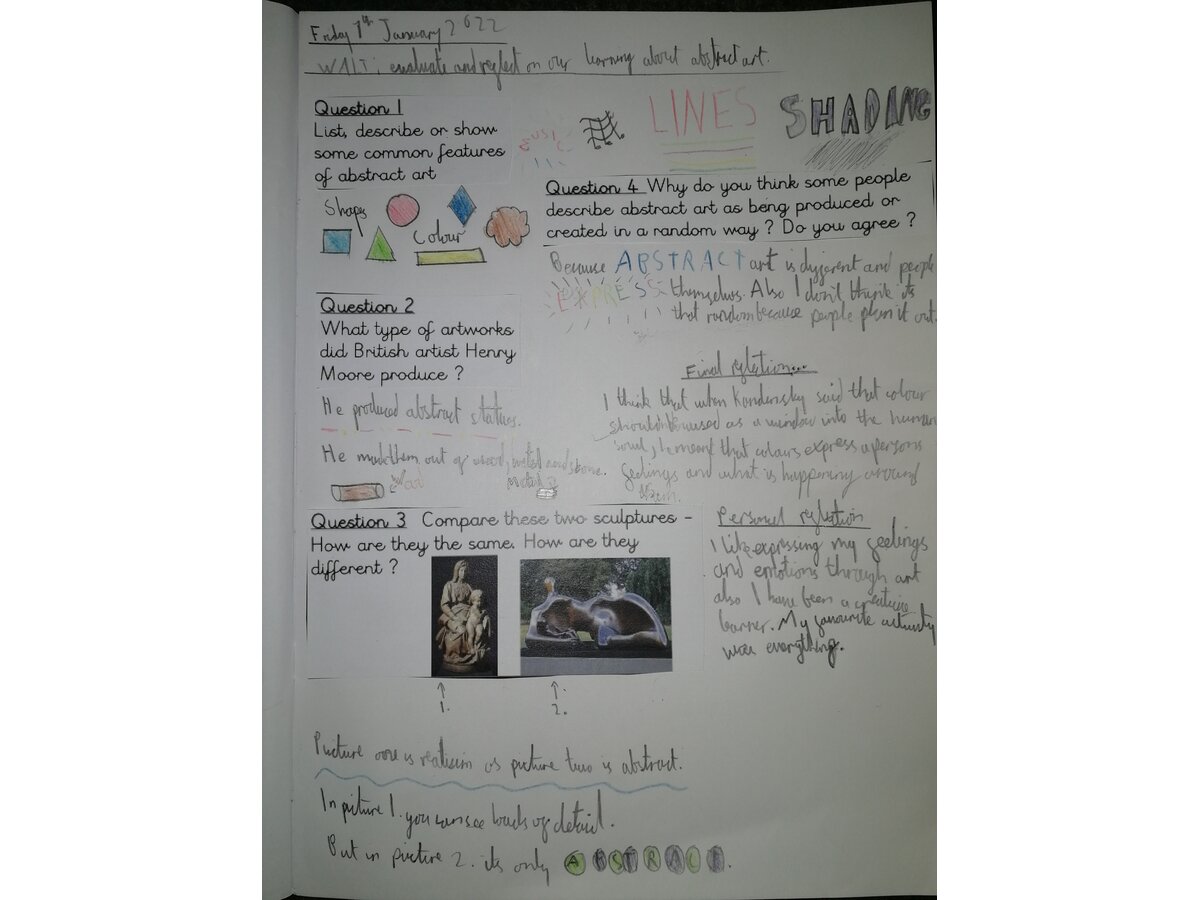 Friday 7th January 2022
WALT: evaluate and reflect on our learning about abstract art.
Question 1
List, describe or show
some common features
of abstract art
LINES
SHADING
Shapes
Colour
Question 4 Why do you think some people
describe abstract art as being produced or
created in a random way ? Do you agree ?
Because ABSTRACT art is different and people
EXPRESS themselves. Also I don't think its
that random because people plan it out.
Question 2
What type of artworks
did British artist Henry
Moore produce ?
He produced abstract statues.
He made them out of wood, metal and stone.
Final reflection...
I think that when Kandinsky said that colour
should be used as a window into the human
soul, he meant that colours express a persons
feelings and what is happening around
them.
Question 3 Compare these two sculptures -
How are they the same. How are they
different ?
1.
2.
Personal reflection
I like expressing my feelings
and emotions through art
also I have been a creative
learner. My favourite activity
was everything.
Picture one is realism as picture two is abstract.
In picture 1. you can see loads of detail.
But in picture 2. its only ABSTRACT.